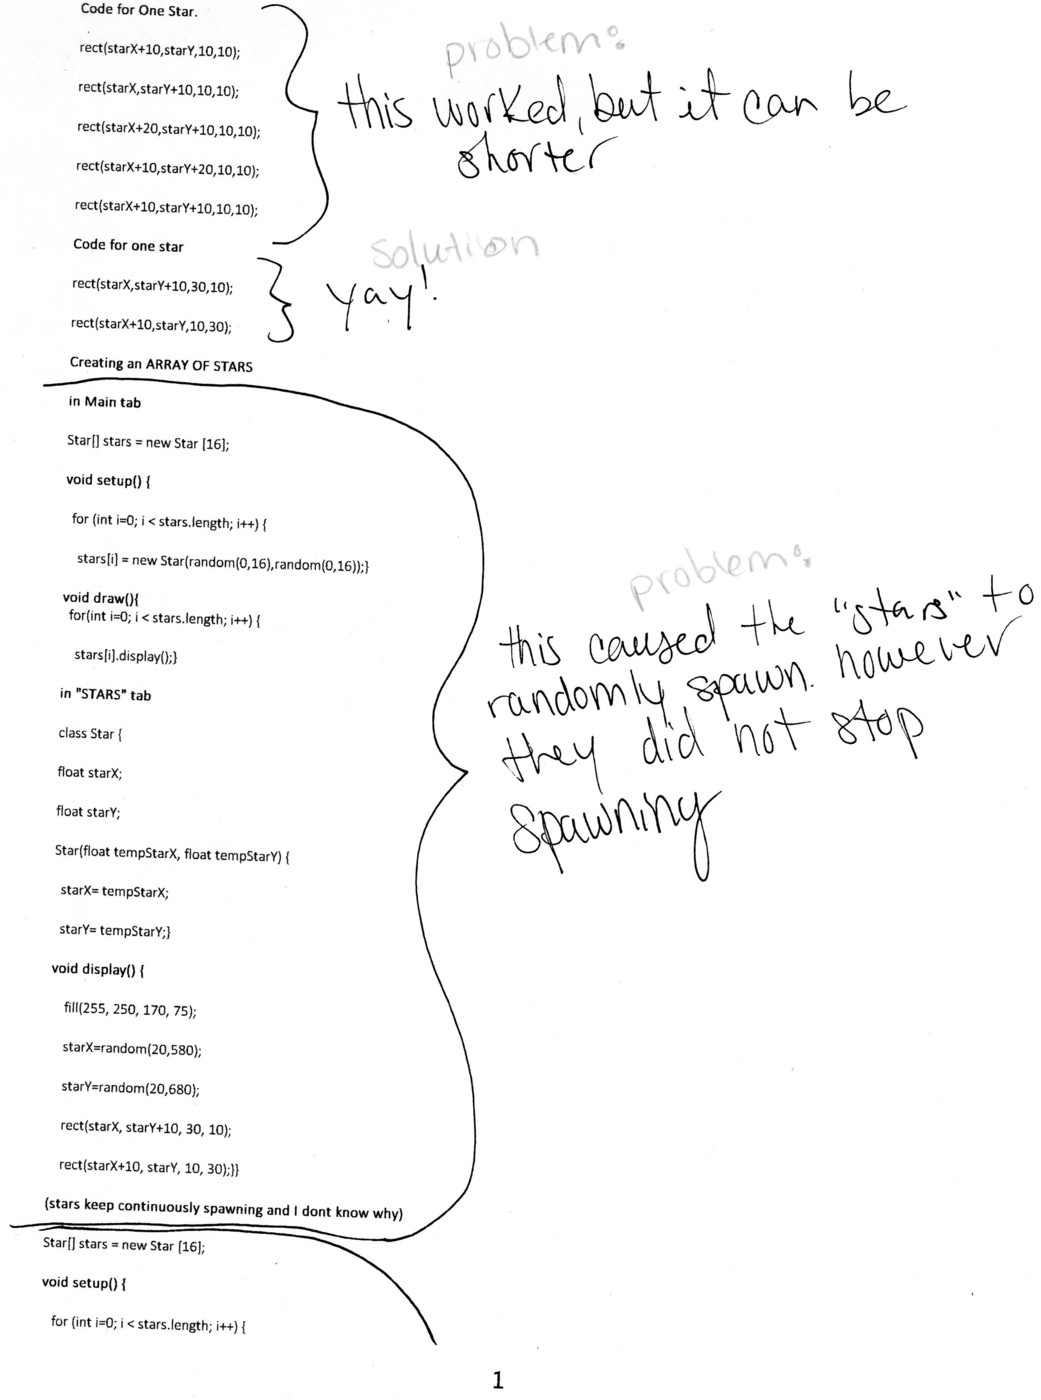 Code for One Star.
rect(starX+10,starY,10,10);
problem:
rect(starX,starY+10,10,10);
this worked, but it can be
rect(starX+20,starY+10,10,10);
shorter
rect(starX+10,starY+20,10,10);
rect(starX+10,starY+10,10,10);
Code for one star
solution
rect(starX,starY+10,30,10);
yay!
rect(starX+10,starY,10,30);
Creating an ARRAY OF STARS
in Main tab
Star[] stars = new Star [16];
void setup() {
for (int i=0; i < stars.length; i++) {
stars[i] = new Star(random(0,16),random(0,16));}
void draw(){
for(int i=0; i < stars.length; i++) {
stars[i].display();}
in "STARS" tab
class Star {
float starX;
float starY;
Star(float tempStarX, float tempStarY) {
starX= tempStarX;
starY= tempStarY;}
void display() {
fill(255, 250, 170, 75);
starX=random(20,580);
starY=random(20,680);
rect(starX, starY+10, 30, 10);
rect(starX+10, starY, 10, 30);}}
(stars keep continuously spawning and I dont know why)
problem:
this caused the "stars" to
randomly spawn. however
they did not stop
spawning
Star[] stars = new Star [16];
void setup() {
for (int i=0; i < stars.length; i++) {
1